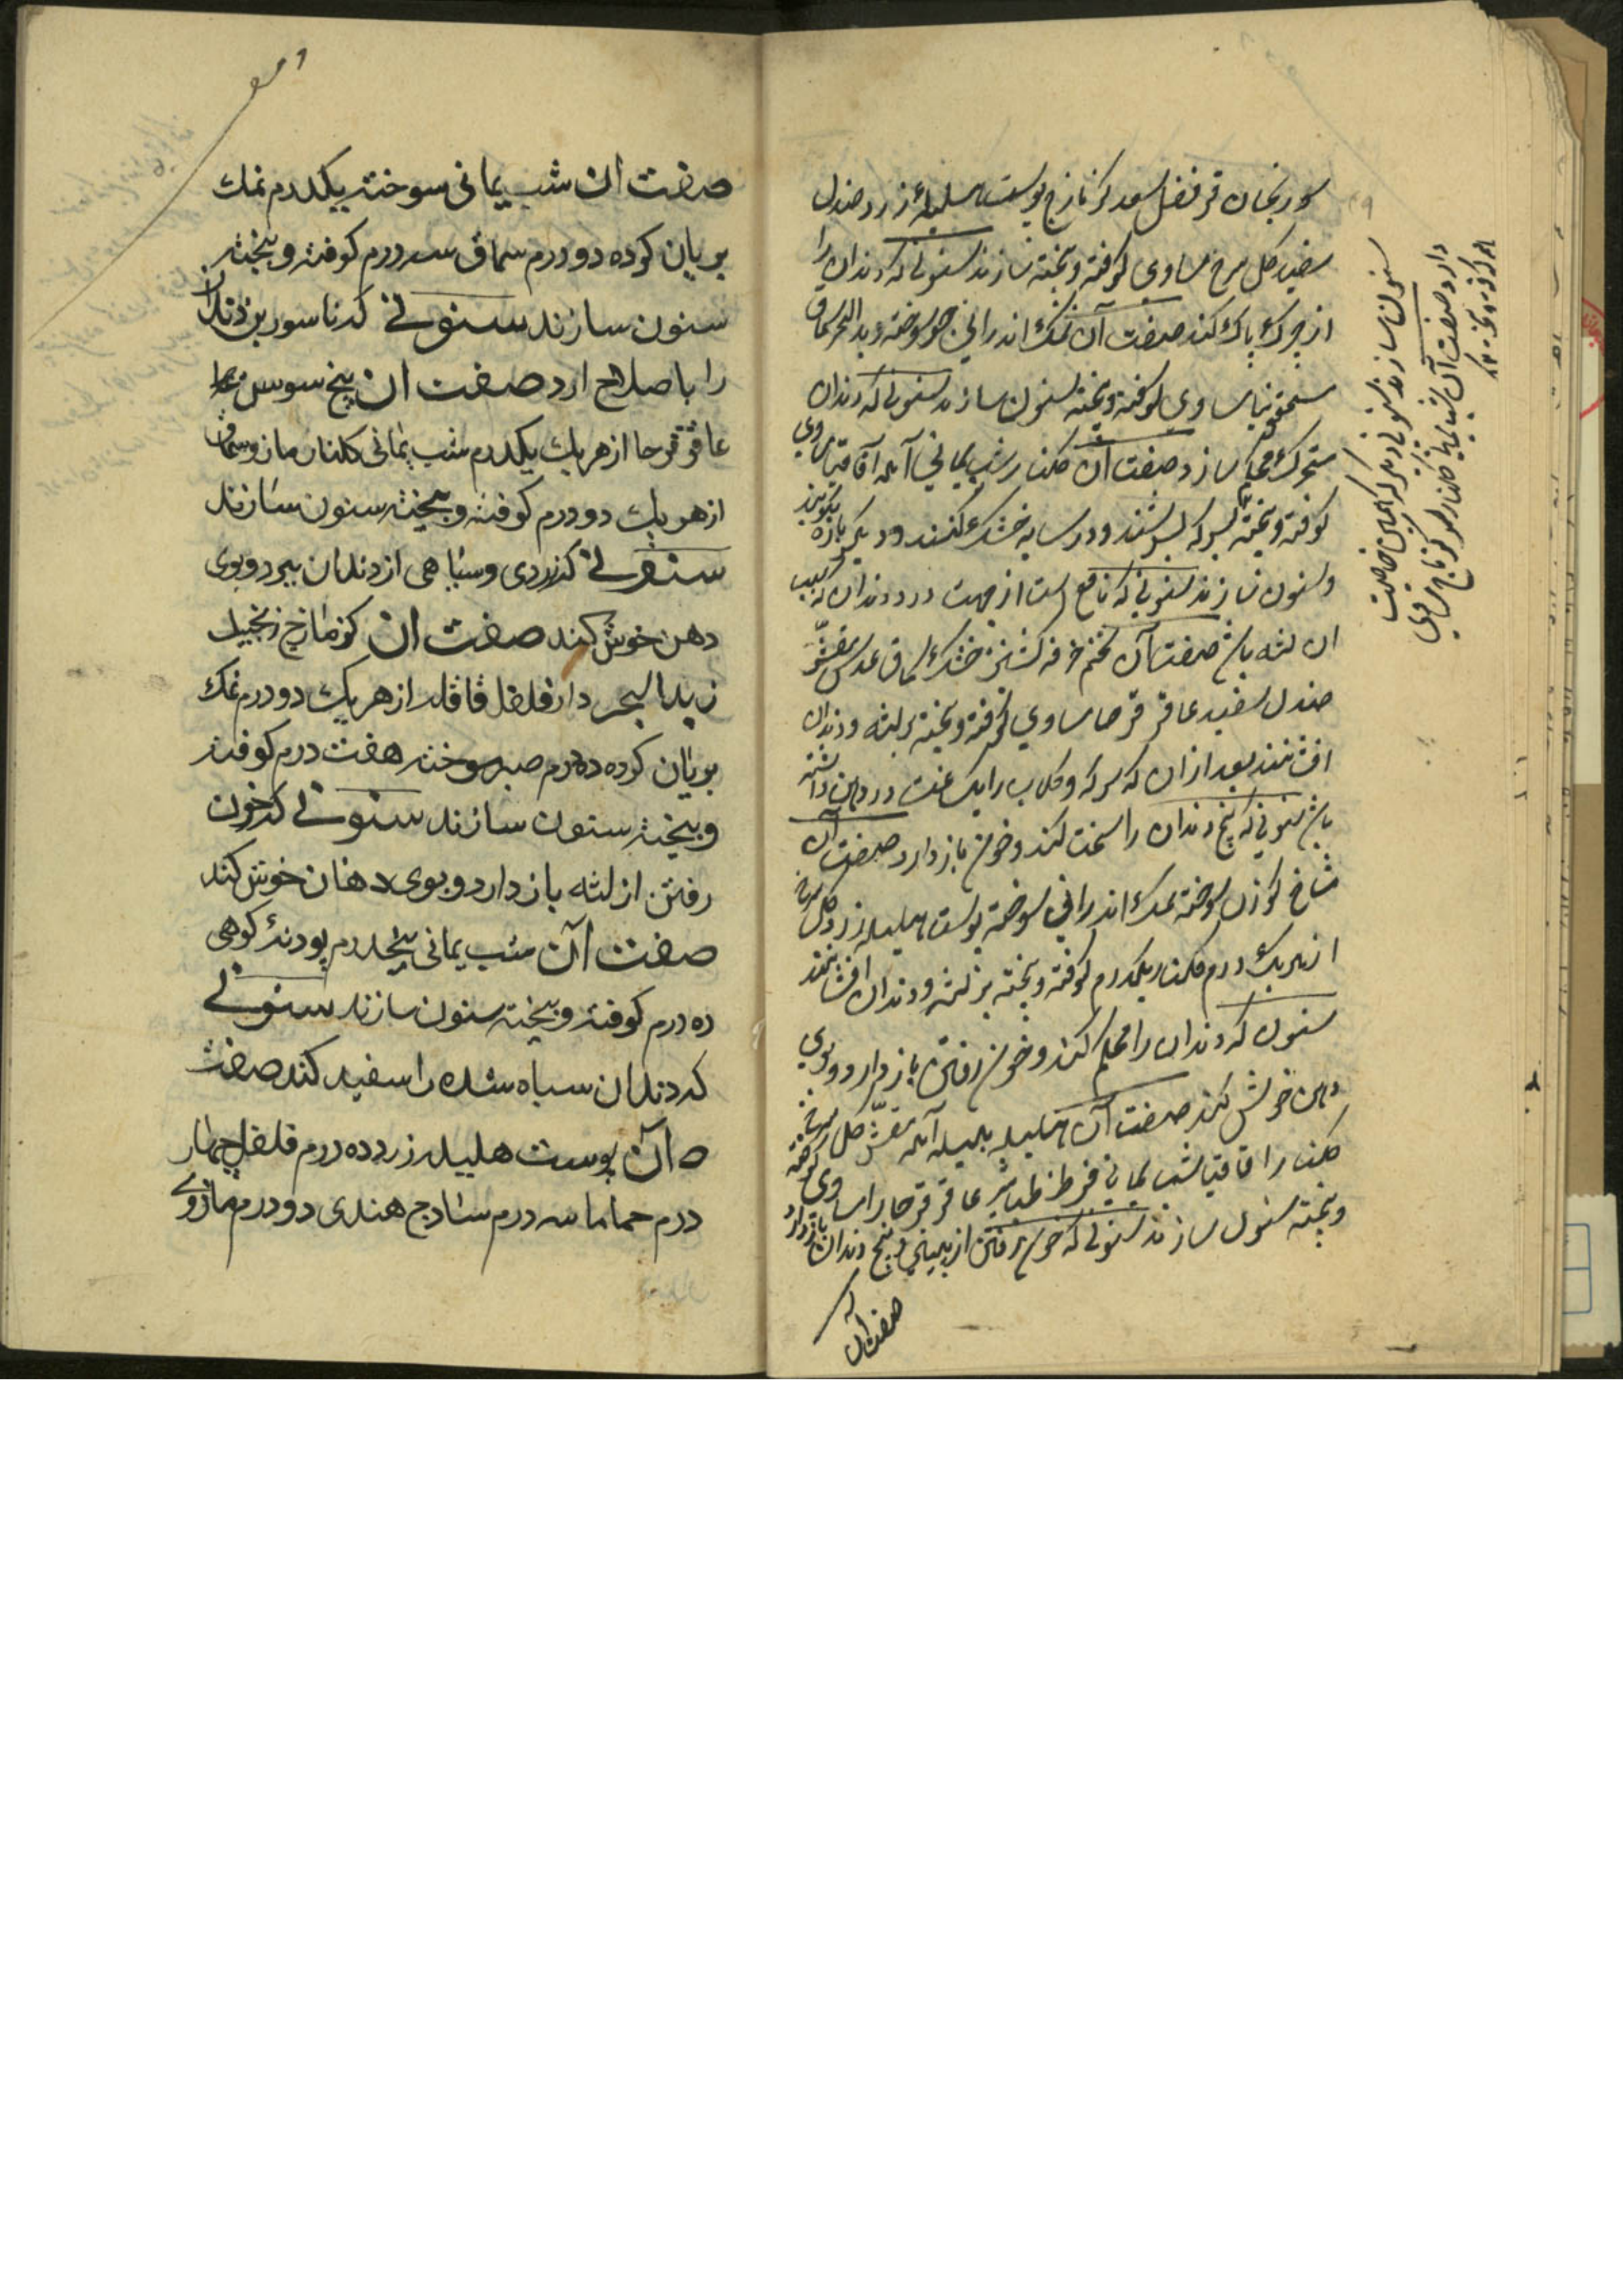 سورنجان قرنفل سعد کزمازج پوست هلیلهٔ زرد صندل
سفید کل سرخ مساوی کوفته و بیخته سازند سنونی که دندان را
از چرک پاک کند صفت آن نمک اندرانی جو سوخته زبد البحر سماق
سقمونیا مساوی کوفته و بیخته سنون سازند سنونی که دندان
متحرک محکم سازد صفت آن کلنار شب یمانی آمله اقاقیا مساوی
کوفته و بیخته بسرکه بسرشند و در سایه خشک کنند و دیکر باره بکوبند
و سنون سازند سنونی که نافع است از جهت درد دندان که سبب
ان لثه باشد صفت آن تخم خرفه کشنیز خشک سماق عدس مقشر
صندل سفید عاقرقرحا مساوی کوفته و بیخته بر لثه و دندان
افشانند بعد ازان که سرکه و کلاب را یک ساعت در دهن داشته
باشند سنونی که بیخ دندان را سخت کند و خون باز دارد صفت آن
شاخ کوزن سوخته نمک اندرانی سوخته پوست هلیله زرد کل سرخ
از هر یک درم کلنار یکدرم کوفته و بیخته بر لثه و دندان افشانند
سنون که دندان را محکم کند و خون رفتن باز دارد و بوی
دهن خوش کند صفت آن هلیله بلیله آمله مقشر کل سرخ
کلنار اقاقیا شب یمانی قرظ طباشیر عاقرقرحا مساوی کوفته
و بیخته سنون سازند سنونی که خون رفتن از بینی و بیخ دندان باز دارد
صفت آن
سنون سازند سنونی دیکر که همین خاصیت
دارد صفت آن شب یمانی کلنار مساوی
صفت ان شب یمانی سوخته یکدرم نمك
بریان کرده دو درم سماق سه درم کوفته و بیخته
سنون سازند سنونی که ناسور بن دندان
را با صلاح ارد صفت ان بیخ سوسن
عاقرقرحا از هر یك یکدرم شب یمانی کلنار مازو سماق
از هر یك دو درم کوفته و بیخته سنون سازند
سنونی که زردی و سیاهی از دندان ببرد و بوی
دهن خوش کند صفت ان کزمازج زنجبیل
زبد البحر دارفلفل قاقله از هر یك دو درم نمك
بریان کرده ده درم صبر سوخته هفت درم کوفته
و بیخته سنون سازند سنونی که خون
رفتن از لثه باز دارد و بوی دهان خوش کند
صفت آن شب یمانی پنجدرم پودنهٔ کوهی
ده درم کوفته و بیخته سنون سازند سنونی
که دندان سیاه شده را سفید کند صفت
آن پوست هلیله زرد ده درم فلفل چهار
درم حماما سه درم سادج هندی دو درم مازوی